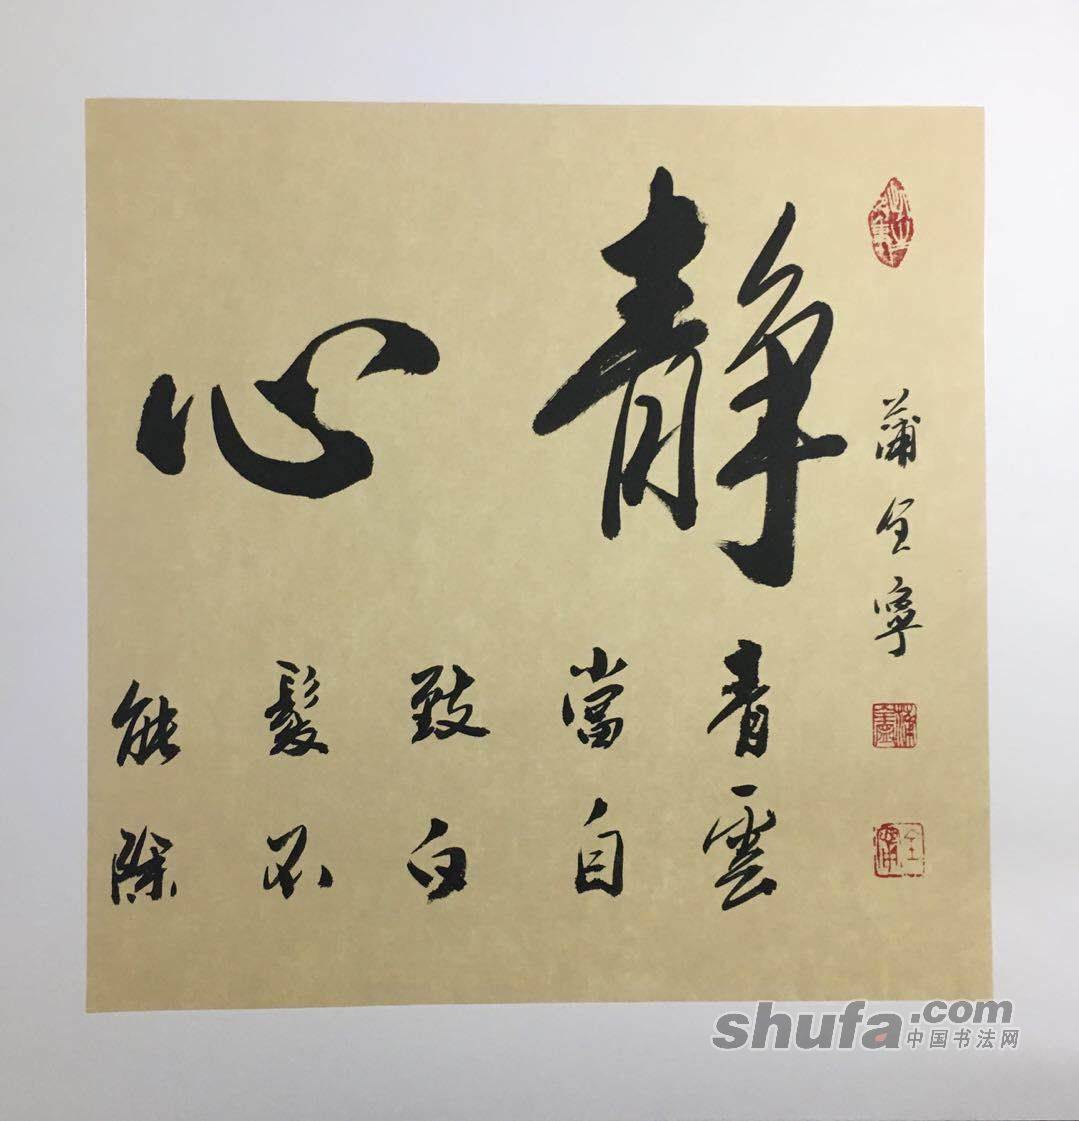 静心
青雲
當自
致白
髮不
能除
蒲全寧
shufa.com
中国书法网